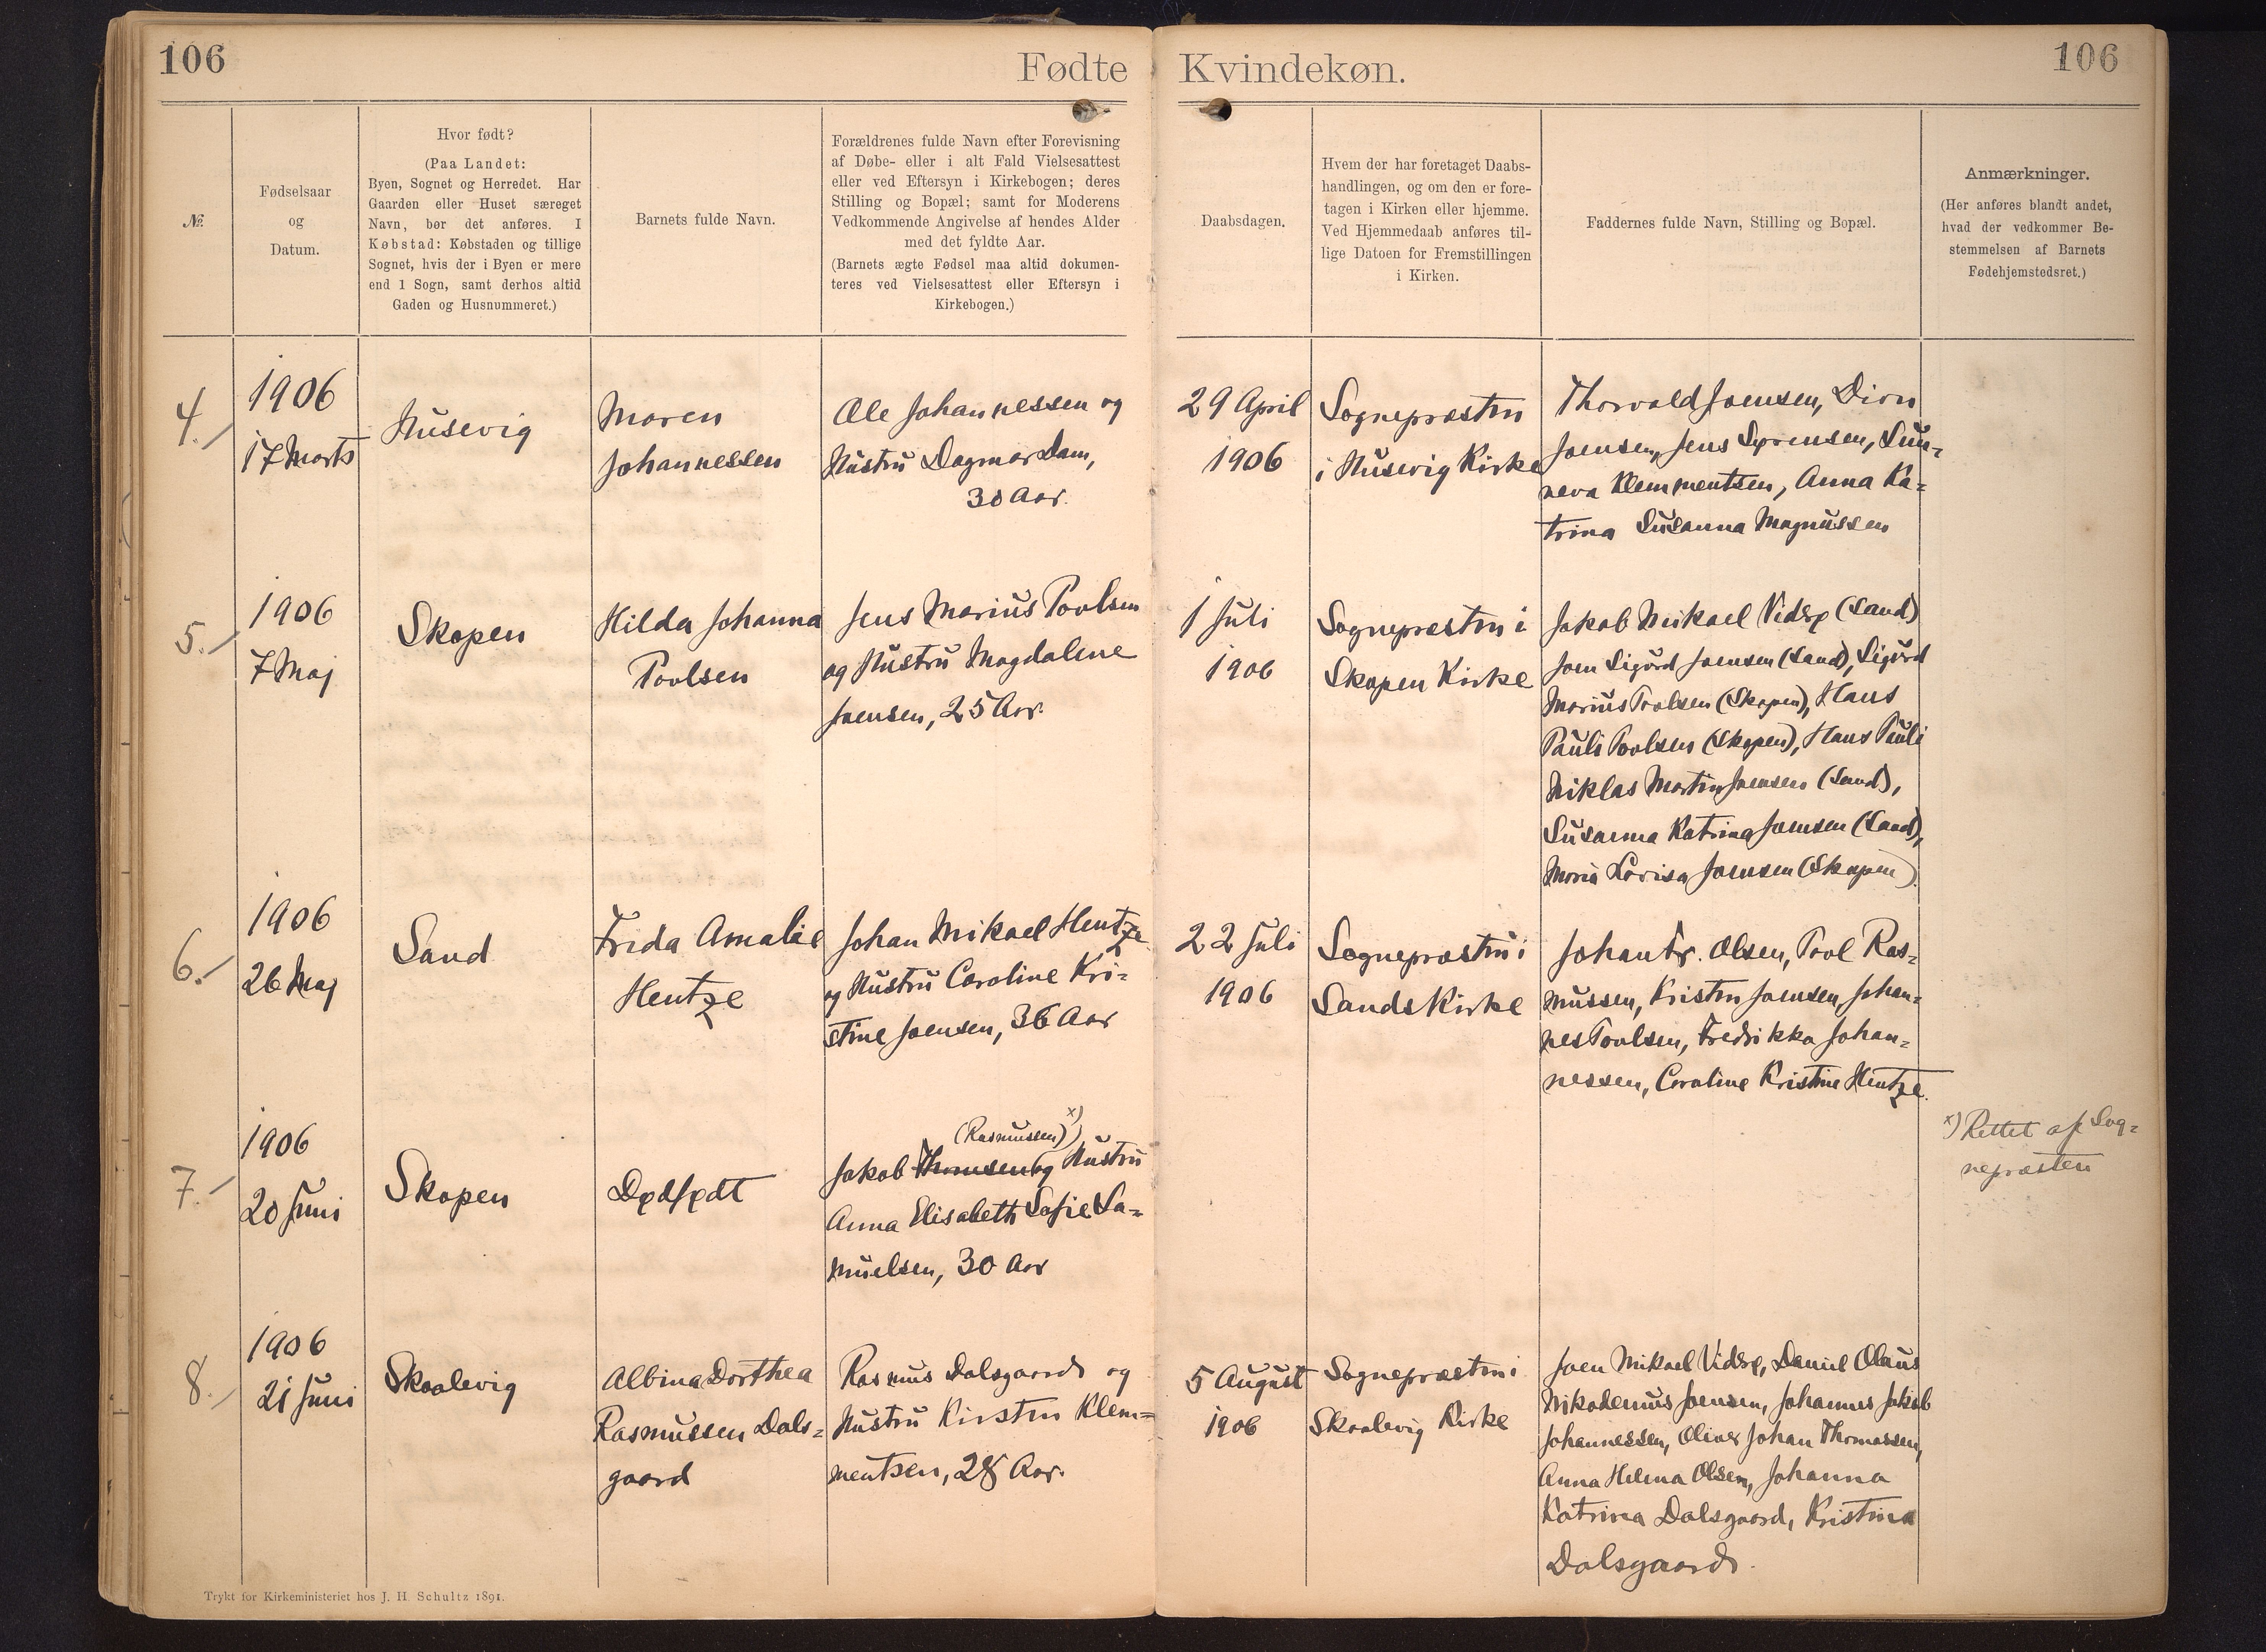 106
Fødte
Kvindekøn.
106
№
Fødselsaar
og
Datum.
Hvor født?
(Paa Landet:
Byen, Sognet og Herredet. Har
Gaarden eller Huset særeget
Navn, bør det anføres. I
Købstad: Købstaden og tillige
Sognet, hvis der i Byen er mere
end 1 Sogn, samt derhos altid
Gaden og Husnummeret.)
Barnets fulde Navn.
Forældrenes fulde Navn efter Forevisning
af Døbe- eller i alt Fald Vielsesattest
eller ved Eftersyn i Kirkebogen; deres
Stilling og Bopæl; samt for Moderens
Vedkommende Angivelse af hendes Alder
med det fyldte Aar.
(Barnets ægte Fødsel maa altid dokumen-
teres ved Vielsesattest eller Eftersyn i
Kirkebogen.)
Daabsdagen.
Hvem der har foretaget Daabs-
handlingen, og om den er fore-
tagen i Kirken eller hjemme.
Ved Hjemmedaab anføres til-
lige Datoen for Fremstillingen
i Kirken.
Faddernes fulde Navn, Stilling og Bopæl.
Anmærkninger.
(Her anføres blandt andet,
hvad der vedkommer Be-
stemmelsen af Barnets
Fødehjemstedsret.)
4.
1906
17 Marts
Husevig
Maren
Johannessen
Ole Johannessen og
Hustru Dagmar Dam,
30 Aar.
29 April
1906
Sognepræsten
i Husevig Kirke
Thorvald Joensen, Dion
Joensen, Jens Sørensen, Sun-
neva Klemmentsen, Anna Ka-
trina Susanna Magnussen
5.
1906
7 Maj
Skopen
Hilda Johanna
Poulsen
Jens Marius Poulsen
og Hustru Magdalene
Joensen, 25 Aar.
1 Juli
1906
Sognepræsten i
Skopen Kirke
Jakob Mikael Viderø (Sand)
Joen Sigurd Joensen (Sand), Sigurd
Marius Poulsen (Skopen), Hans
Pauli Poulsen (Skopen), Hans Pauli
Niklas Martin Joensen (Sand),
Susanna Katrina Joensen (Sand),
Maria Lovisa Joensen (Skopen).
6.
1906
26 Maj
Sand
Frida Amalie
Hentze
Johan Mikael Hentze
og Hustru Caroline Kri-
stine Joensen, 36 Aar
22 Juli
1906
Sognepræsten i
Sands Kirke
Johan Fr. Olsen, Poul Ras-
mussen, Kristen Joensen, Johan-
nes Poulsen, Fredrikka Johan-
nessen, Caroline Kristine Hentze.
7.
1906
20 Juni
Skopen
Dødfødt
(Rasmussen) x)
Jakob Thomsen og Hustru
Anna Elisabeth Sofie Sa-
muelsen, 30 Aar
x) Rettet af Sog-
nepræsten
8.
1906
21 Juni
Skaalevig
Albina Dorthea
Rasmussen Dals-
gaard
Rasmus Dalsgaard og
Hustru Kirsten Klem-
mentsen, 28 Aar.
5 August
1906
Sognepræsten i
Skaalevig Kirke
Joen Mikael Viderø, Daniel Olaus
Nikodemus Joensen, Johannes Jakob
Johannessen, Oliver Johan Thomassen,
Anna Helena Olsen, Johanna
Katrina Dalsgaard, Kristina
Dalsgaard.
Trykt for Kirkeministeriet hos J. H. Schultz 1891.